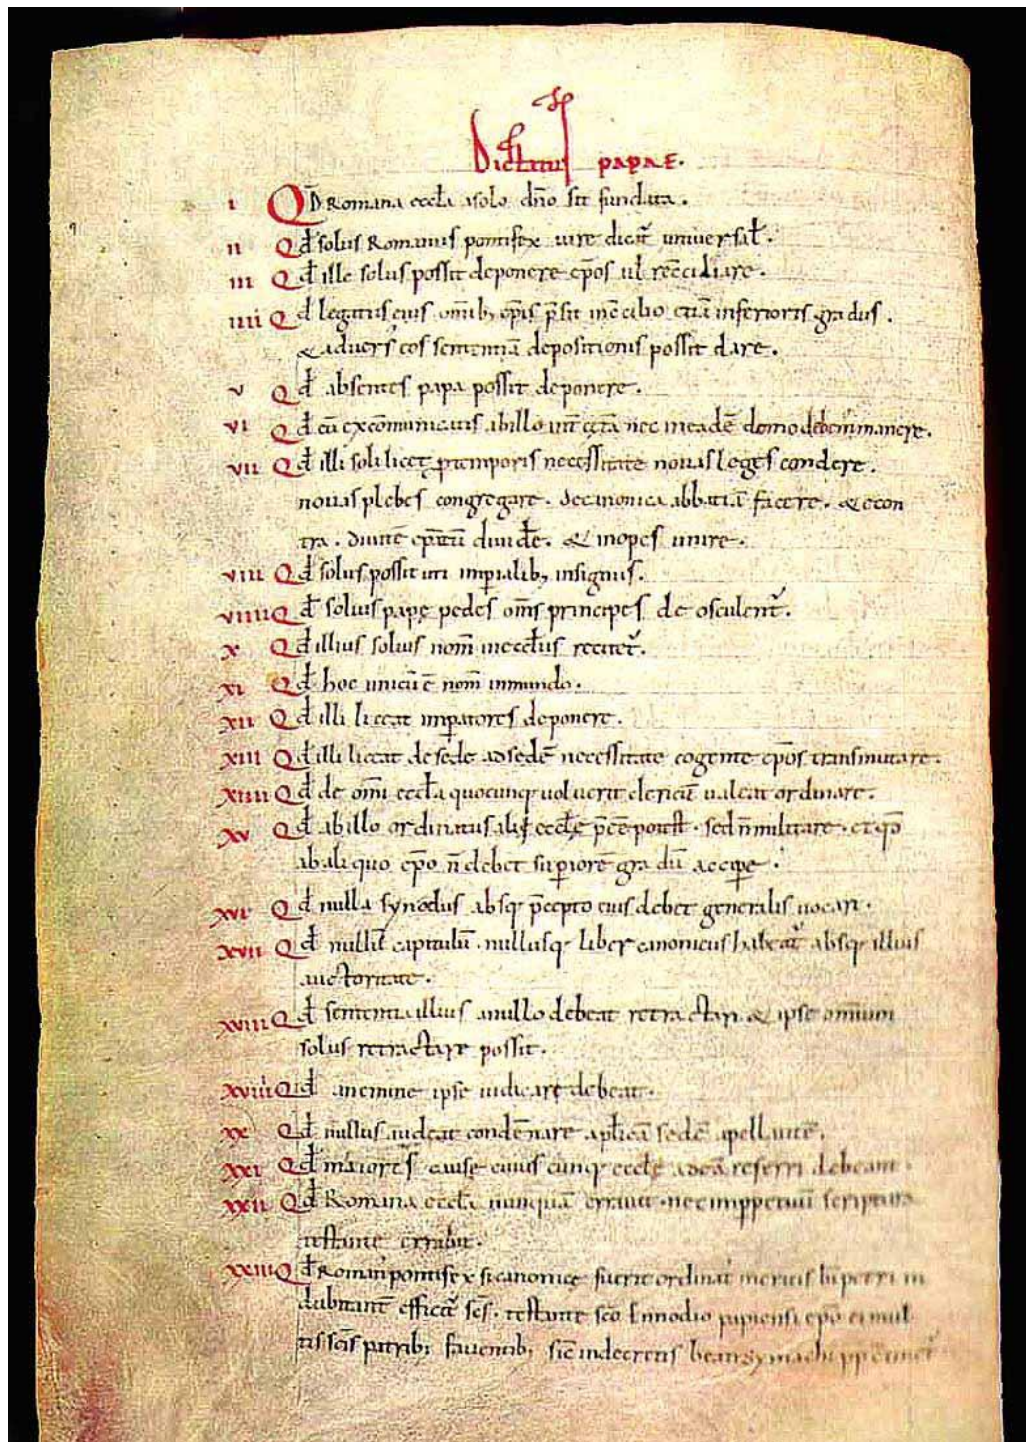 Dictatus papae.
i Qd Romana eccła a solo dño sit fundata.
ii Qđ solus Romanus pontifex iure dicat̃ universał.
iii Qđ ille solus possit deponere ep̃os uł recc̃iliare.
iiii Qđ legatus eius omñib; ep̃is p̃sit in cc̃ilio etiã inferioris gradus.
& advers' eos sententiã depositionis possit dare.
v Qđ absentes papa possit deponere.
vi Qđ cũ excõmunicatis ab illo int̃ cet̃a nec in eadẽ domo debem' manere.
vii Qđ illi soli licet p̱ temporis necessitate novas leges condere.
novas plebes congregare. de canonica abbatiã facere. & econ
tra. divitẽ ep̃atũ divid̃e. & inopes unire.
viii Qđ solus possit uti imp̱ialib; insigniis.
viiii Qđ solius papę pedes om̃s principes deosculent̃.
x Qđ illius solius nom̃ in ecc̃liis recitet̃.
xi Qđ hoc unicũ ẽ nom̃ in mundo.
xii Qđ illi liceat imp̱atores deponere.
xiii Qđ illi liceat de sede ad sedẽ necessitate cogente ep̃os transmutare.
xiiii Qđ de om̃i eccła quocunq; voluerit clericũ valeat ordinare.
xv Qđ ab illo ordinatus alii ecc̃lę p̃ẽe potest. sed ñ militare. et qđ
ab aliquo ep̃o ñ debet sup̱iorẽ gradũ accip̱e.
xvi Qđ nulla synodus absq; p̃cepto eius debet generalis vocari.
xvii Qđ nullũ capitulũ. nullusq; liber canonicus habeat̃ absq; illius
auctoritate.
xviii Qđ sententia illius a nullo debeat retractari & ipse omnium
solus retractare possit.
xviiii Qđ a nemine ipse iudicare debeat.
xx Qđ nullus audeat condẽnare apłicã sedẽ apellantẽ.
xxi Qđ maiores causę cuiuscunq; ecc̃lę ad eã referri debeant.
xxii Qđ Romana eccła nunquã erravit. nec imp̱petuũ scriptura
testante errabit.
xxiii Qđ Roman' pontifex si canonicę fuerit ordinat' meritis b̃i petri in
dubitant̃ effficit̃ sc̃s. testante sc̃o Ennodio papiensi ep̃o ei mul
tis sc̃is patrib; faventib; sic̃ in decretis beati symachi pp̃ continet̃